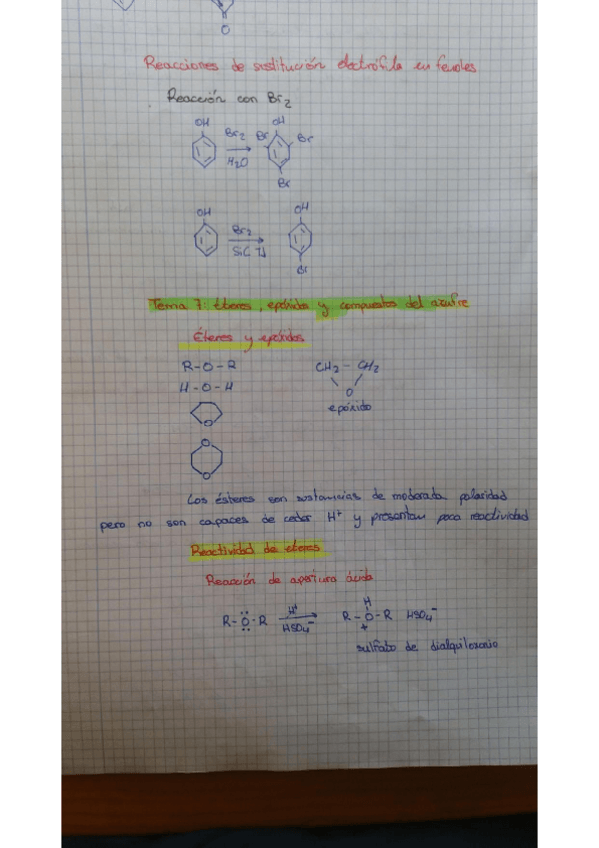 O
Reacciones de sustitución electrófila en fenoles
Reacción con Br2
OH OH
Br2 Br Br
H2O
Br
OH OH
Br2
Br
Tema 7: Éteres, epóxidos y compuestos del azufre
Éteres y epóxidos
R-O-R CH2-CH2
H-O-H O
O epóxido
O
O
Los ésteres son sustancias de moderada polaridad
pero no son capaces de ceder H+ y presentan poca reactividad
Reactividad de éteres
Reacción de apertura ácida
H+ H
R-O-R R-O-R HSO4-
HSO4- +
sulfato de dialquiloxonio